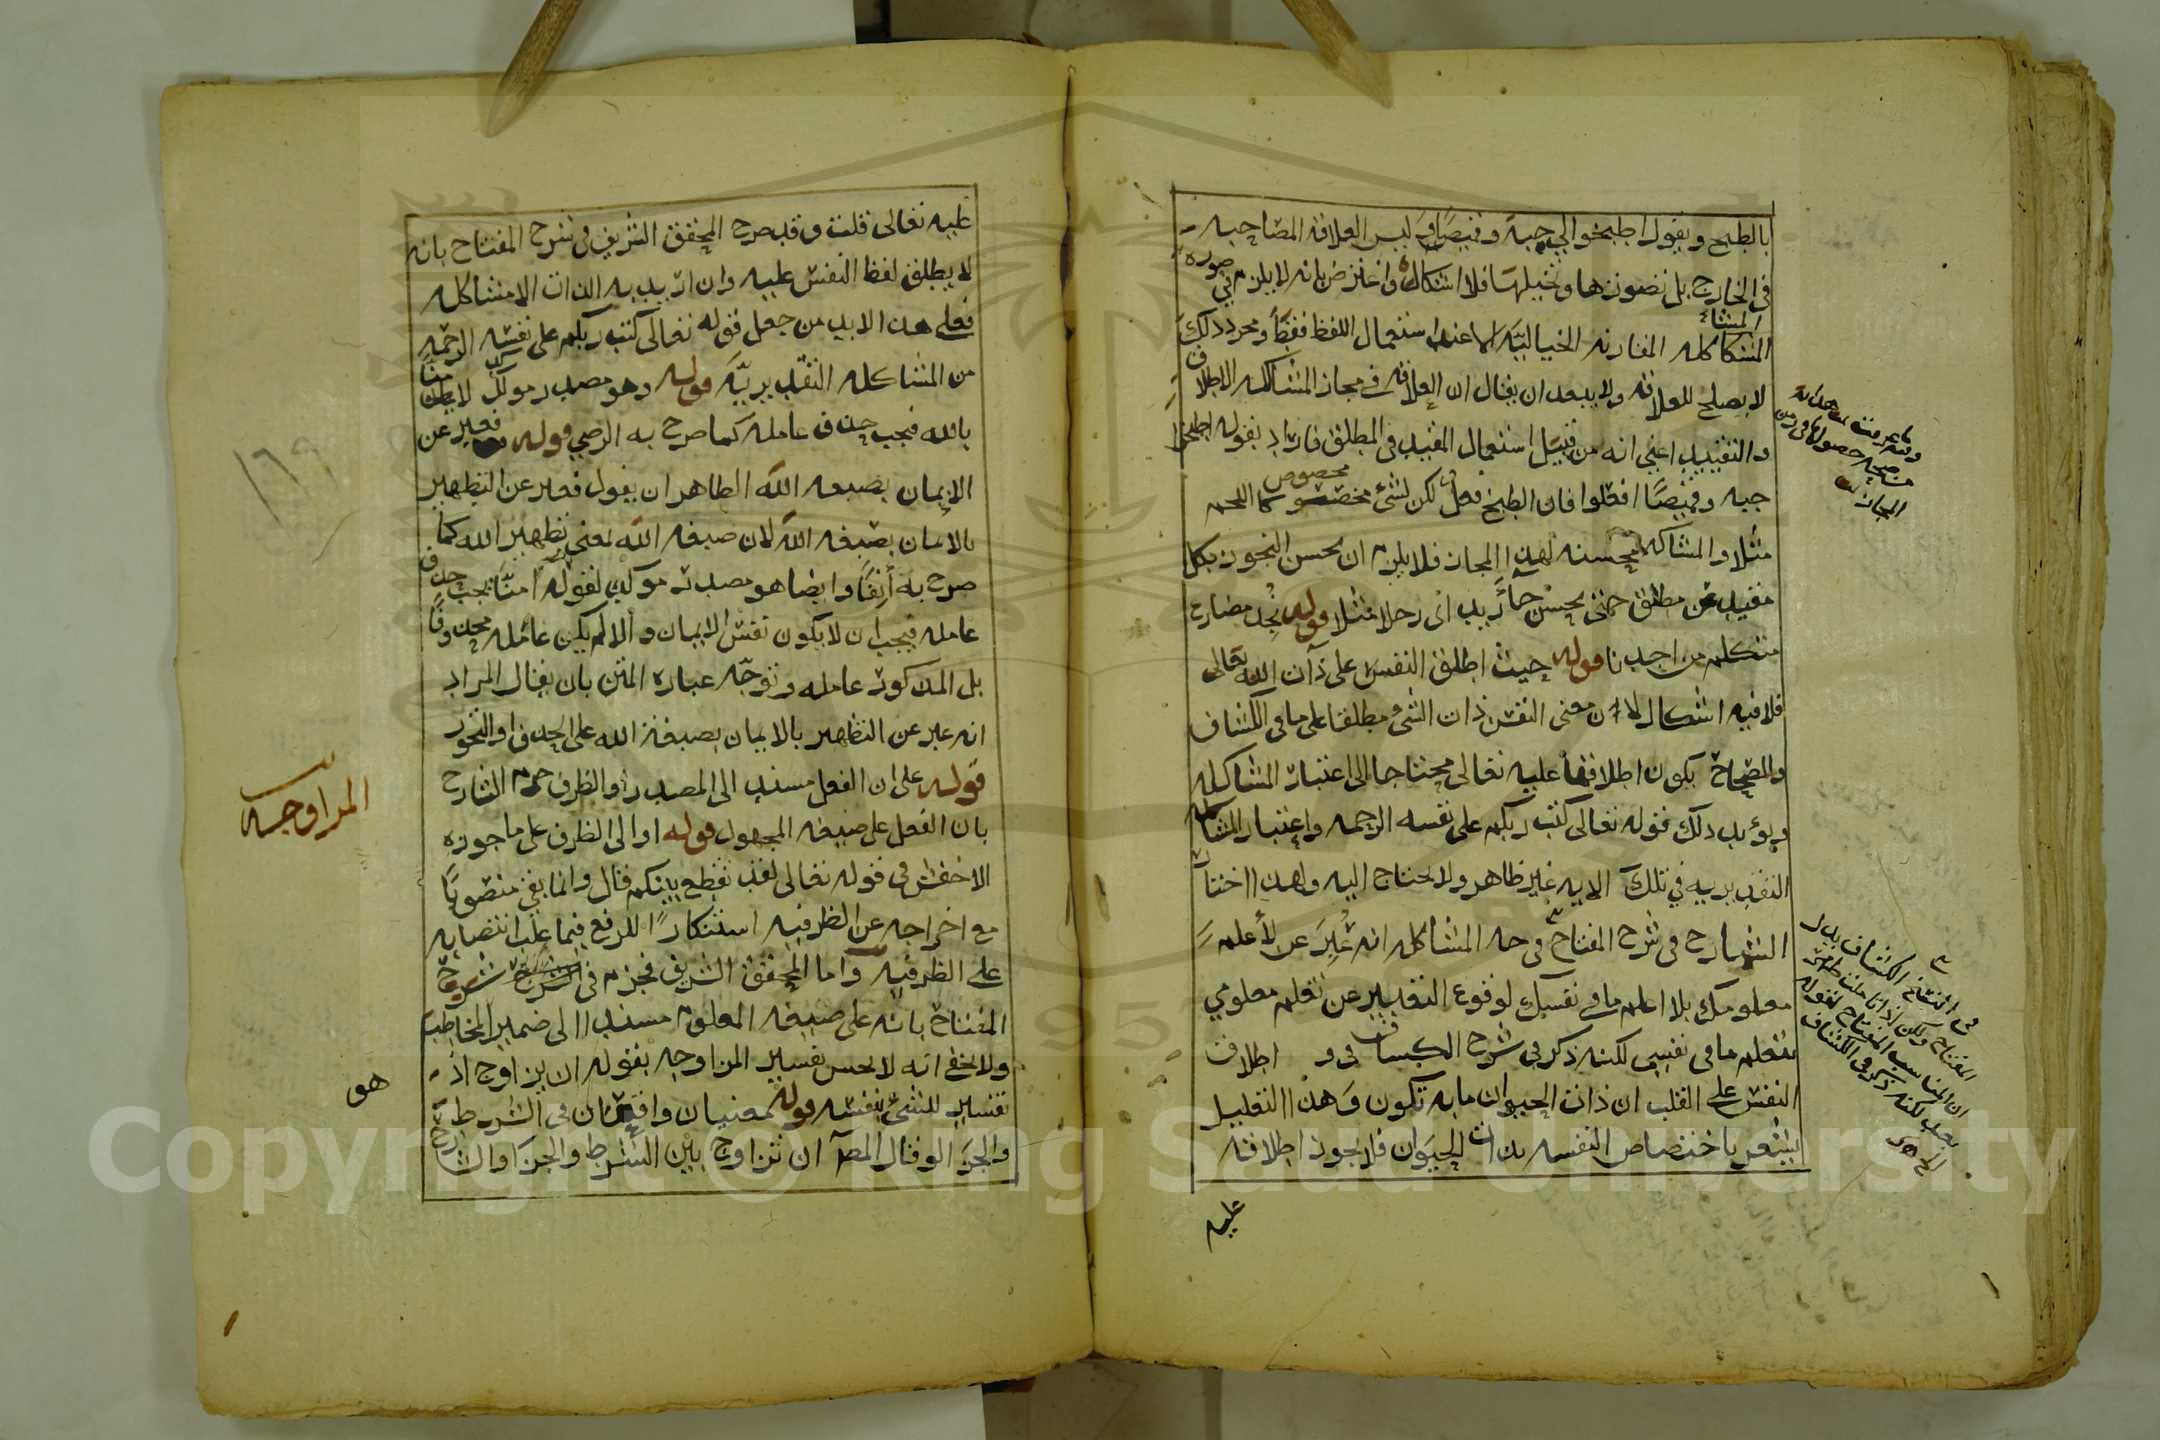 بالطبخ ويقول اطبخوا لي جبة وقميصا وليس العلاقة المصاحبة
في الخارج بل تصورها وتخيلها فلا اشكال واعترض بانه لا يلزم في صورة
المشاكلة المقارنة الخيالية الا عند استعمال اللفظ فقط ومجرد ذلك
لا يصلح للعلاقة ولا يبعد ان يقال ان العلاقة في مجاز المشاكلة الاطلاق
والتقييد اعني انه من قبيل استعمال المقيد في المطلق فاراد بقوله اطبخوا
جبة وقميصا افعلوا فان الطبخ فعل لكن لشئ مخصوص كاللحم
مثلا والمشاكلة محسنة لهذا المجاز فلا يلزم ان يحسن التجوز بكل
مقيد عن مطلق حتى يحسن جأ زيد اى رجلا مثلا قوله نجد مضارع
متكلم من اجدنا قوله حيث اطلق النفس على ذات الله تعالى
فلا فيه اشكال لان معنى النفس ذات الشئ مطلقا على ما في الكشاف
والصحاح يكون اطلاقها عليه تعالى محتاجا الى اعتبار المشاكلة
ويؤيد ذلك قوله تعالى كتب ربكم على نفسه الرحمة واعتبار المشاكلة
التقديرية في تلك الاية غير ظاهر ولا يحتاج اليه ولهذا اختار
الشارح في شرح المفتاح في وجه المشاكلة انه عبر عن لا اعلم
معلومك بلا اعلم ما في نفسك لوقوع التعبير عن تعلم معلومي
بتعلم ما في نفسي لكنه ذكر في شرح الكشاف في و اطلاق
النفس على القلب ان ذات الحيوان ما به تكون وهذا التعليل
يشعر باختصاص النفس بذات الحيوان فلا يجوز اطلاقه
عليه
عليه تعالى قلت وقد صرح المحقق الشريف في شرح المفتاح بانه
لا يطلق لفظ النفس عليه وان اريد به الذات الا مشاكلة
فعلى هذا لا بد من جعل قوله تعالى كتب ربكم على نفسه الرحمة
من المشاكلة التقديرية قوله وهو مصدر مؤكد لامنا
بالله فيجب حذف عامله كما صرح به الرضي قوله فعبر عن
الايمان بصبغة الله الظاهر ان يقول فعبر عن التطهير
بالايمان بصبغة الله لان صبغة الله بمعنى تطهير الله كما
صرح به آنفا وايضا هو مصدر مؤكد لقوله امنا يجب حذف
عامله فيجب ان لا يكون نفس الايمان والا لم يكن عامله محذوفا
بل المذكور عامله وتوجه عبارة المتن بان يقال المراد
انه عبر عن التطهير بالايمان بصبغة الله على الحذف او التجوز
قوله على ان الفعل مسند الى المصدر او الظرف جزم الشارح
بان الفعل على صيغة المجهول قوله او الى الظرف على ما جوزه
الاخفش في قوله تعالى لقد تقطع بينكم قال وانما بقي منصوبا
مع اخراجه عن الظرفية استنكارا للرفع فيما غلب انتصابه
على الظرفية واما المحقق الشريف فجزم في شرح
المفتاح بانه على صيغة المعلوم مسندا الى ضمير المخاطب
ولا يخفى انه لا يحسن تفسير المزاوجة بقوله ان يزاوج اذ
تفسير للشئ بنفسه قوله معنيان واقعان في الشرط
والجزا لو قال المص ان تزاوج بين الشرط والجزا
المزاوجة
هو